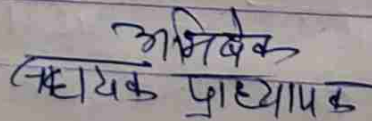 अभिषेक
सहायक प्राध्यापक